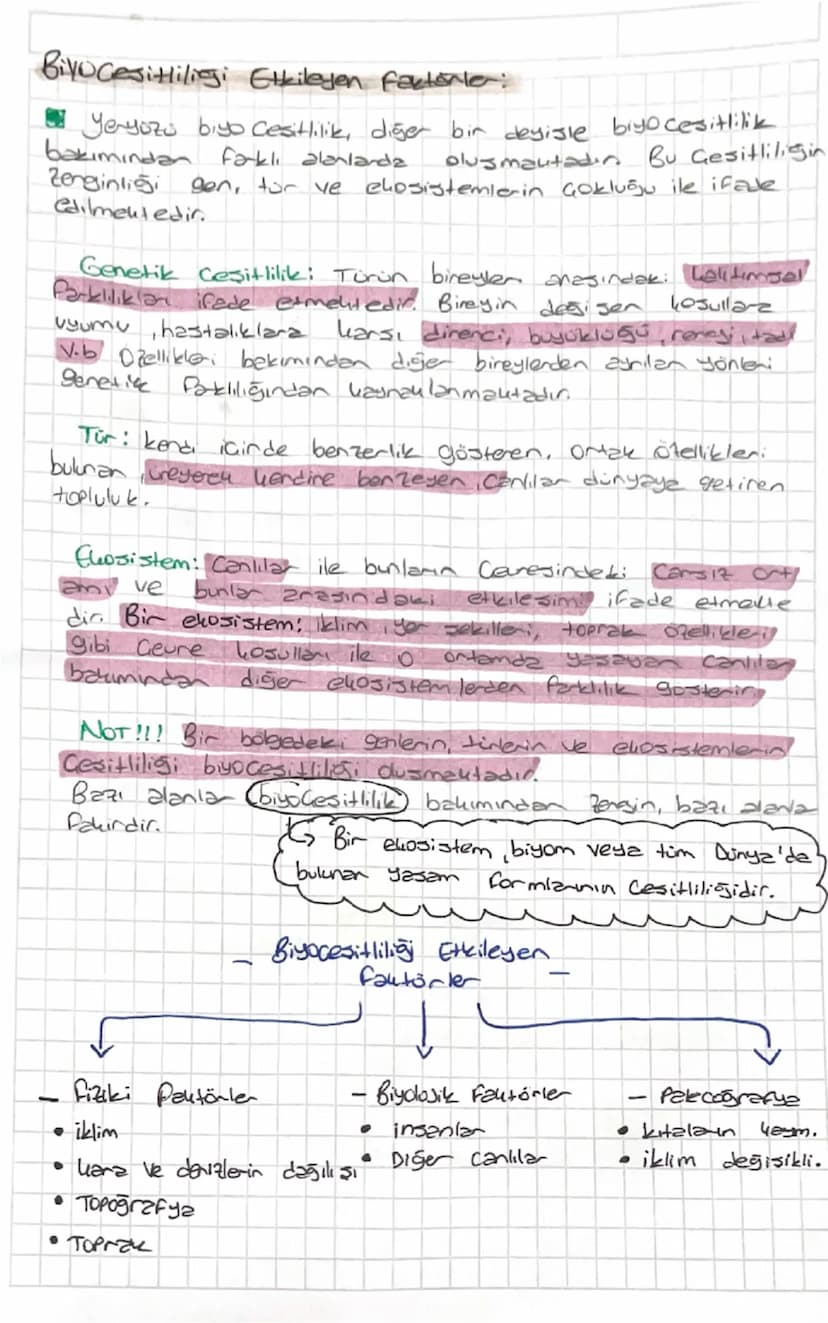 Biyoçeşitliliği Etkileyen Faktörler:
Yeryüzü biyoçeşitlilik, diğer bir deyişle biyoçeşitlilik
bakımından farklı alanlarda oluşmaktadır. Bu Çeşitliliğin
zenginliği gen, tür ve ekosistemlerin çokluğu ile ifade
edilmektedir.
Genetik Çeşitlilik: Türün bireyler arasındaki kalıtımsal
farklılıkları ifade etmektedir. Bireyin değişen koşullara
uyumu, hastalıklara karşı direnci, büyüklüğü, rengi, tadı
v.b özellikleri bakımından diğer bireylerden ayrılan yönleri
genetik farklılığından kaynaklanmaktadır.
Tür: kendi içinde benzerlik gösteren, ortak özellikleri
bulunan, üreyerek kendine benzeyen, Canlılar dünyaya getiren
topluluk.
Ekosistem: Canlılar ile bunların Çevresindeki Cansız ort
amı ve bunlar arasındaki etkileşimi ifade etmekte
dir. Bir ekosistem: iklim, yer şekilleri, toprak özellikleri
gibi Çevre koşulları ile o ortamda yaşayan canlılar
bakımından diğer ekosistemlerden farklılık gösterir.
NOT!!! Bir bölgedeki genlerin, türlerin ve ekosistemlerin
Çeşitliliği biyoçeşitliliği oluşmaktadır.
Bazı alanlar biyoçeşitlilik bakımından zengin, bazı alanla
fakirdir.
↳ Bir ekosistem, biyom veya tüm Dünya'de
bulunan yaşam formlarının Çeşitliliğidir.
- Biyoçeşitliliği Etkileyen
faktörler -
- Fiziki faktörler
• iklim
• kara ve denizlerin dağılışı
• Topoğrafya
• Toprak
- Biyolojik Faktörler
• insanlar
• Diğer canlılar
- Paleocoğrafya
• kıtaların kaym.
• iklim değişikli.